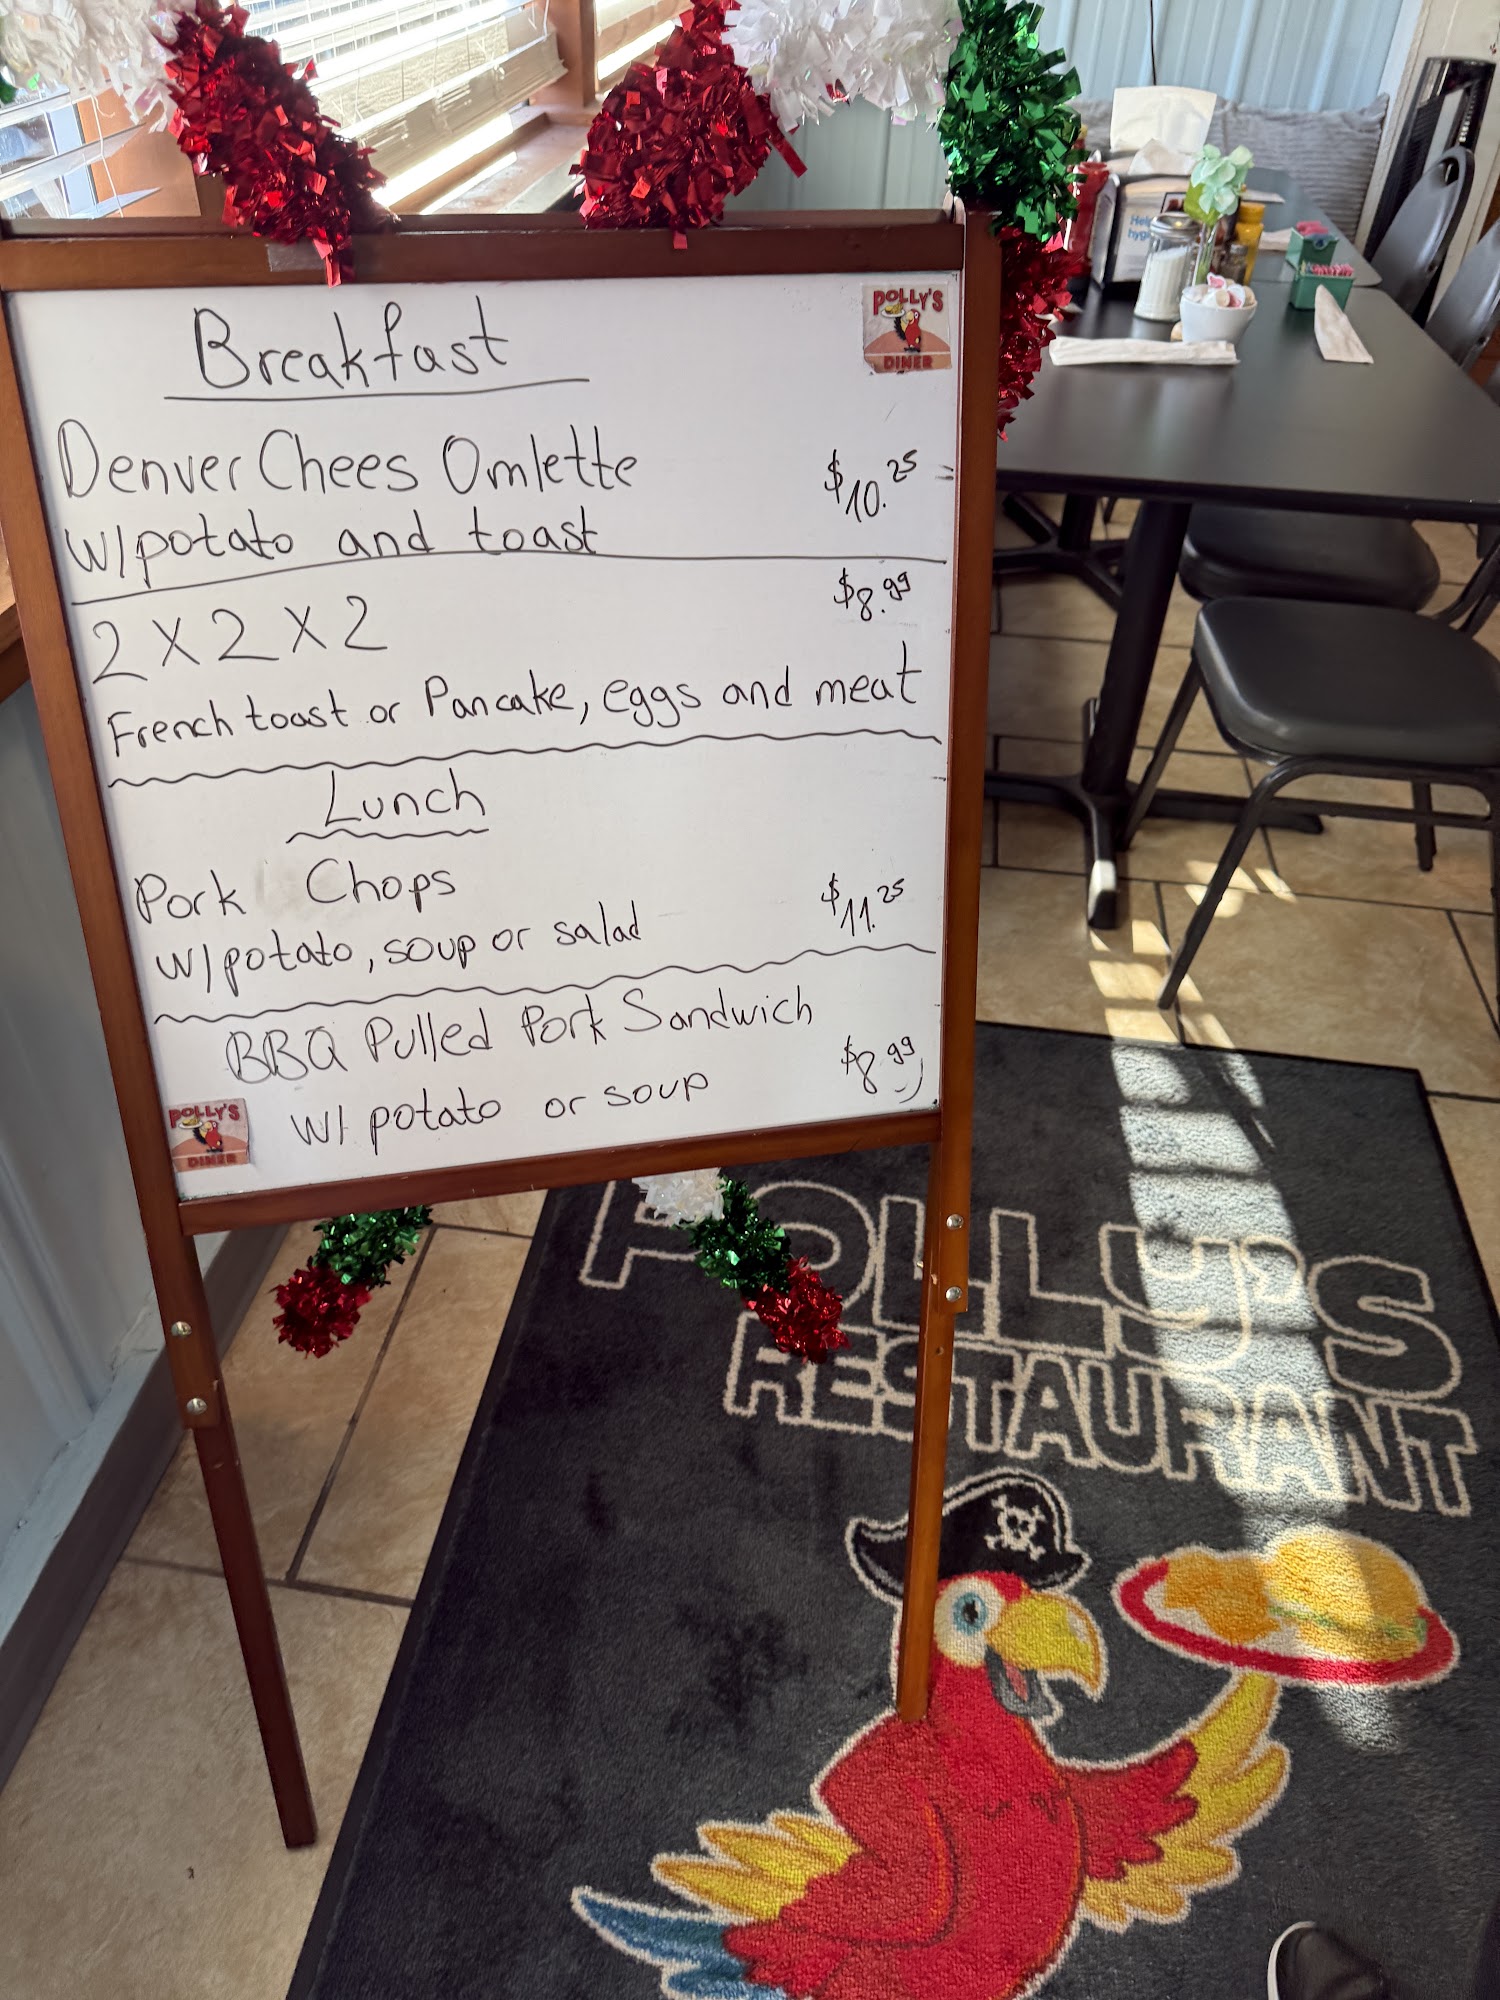 Breakfast
POLLY'S
DINER
Denver Chees Omlette
$10.25
w/potato and toast
2 X 2 X 2
$8.99
French toast or Pancake, eggs and meat
Lunch
Pork Chops
$11.25
w/potato, soup or salad
BBQ Pulled Pork Sandwich
$8.99
w/ potato or soup
POLLY'S
DINER
POLLY'S
RESTAURANT